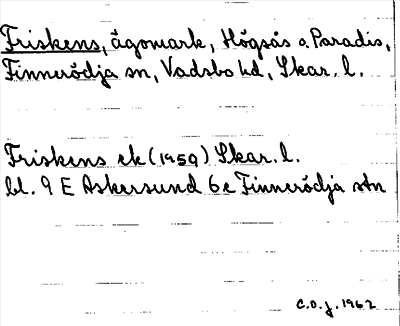 Friskens, ägomark, Högsås o. Paradis,
Finnerödja sn, Vadsbo hd, Skar. l.
Friskens ek (1959) Skar. l.
bl. 9 E Askersund 6e Finnerödja stn
C.O.J. 1962